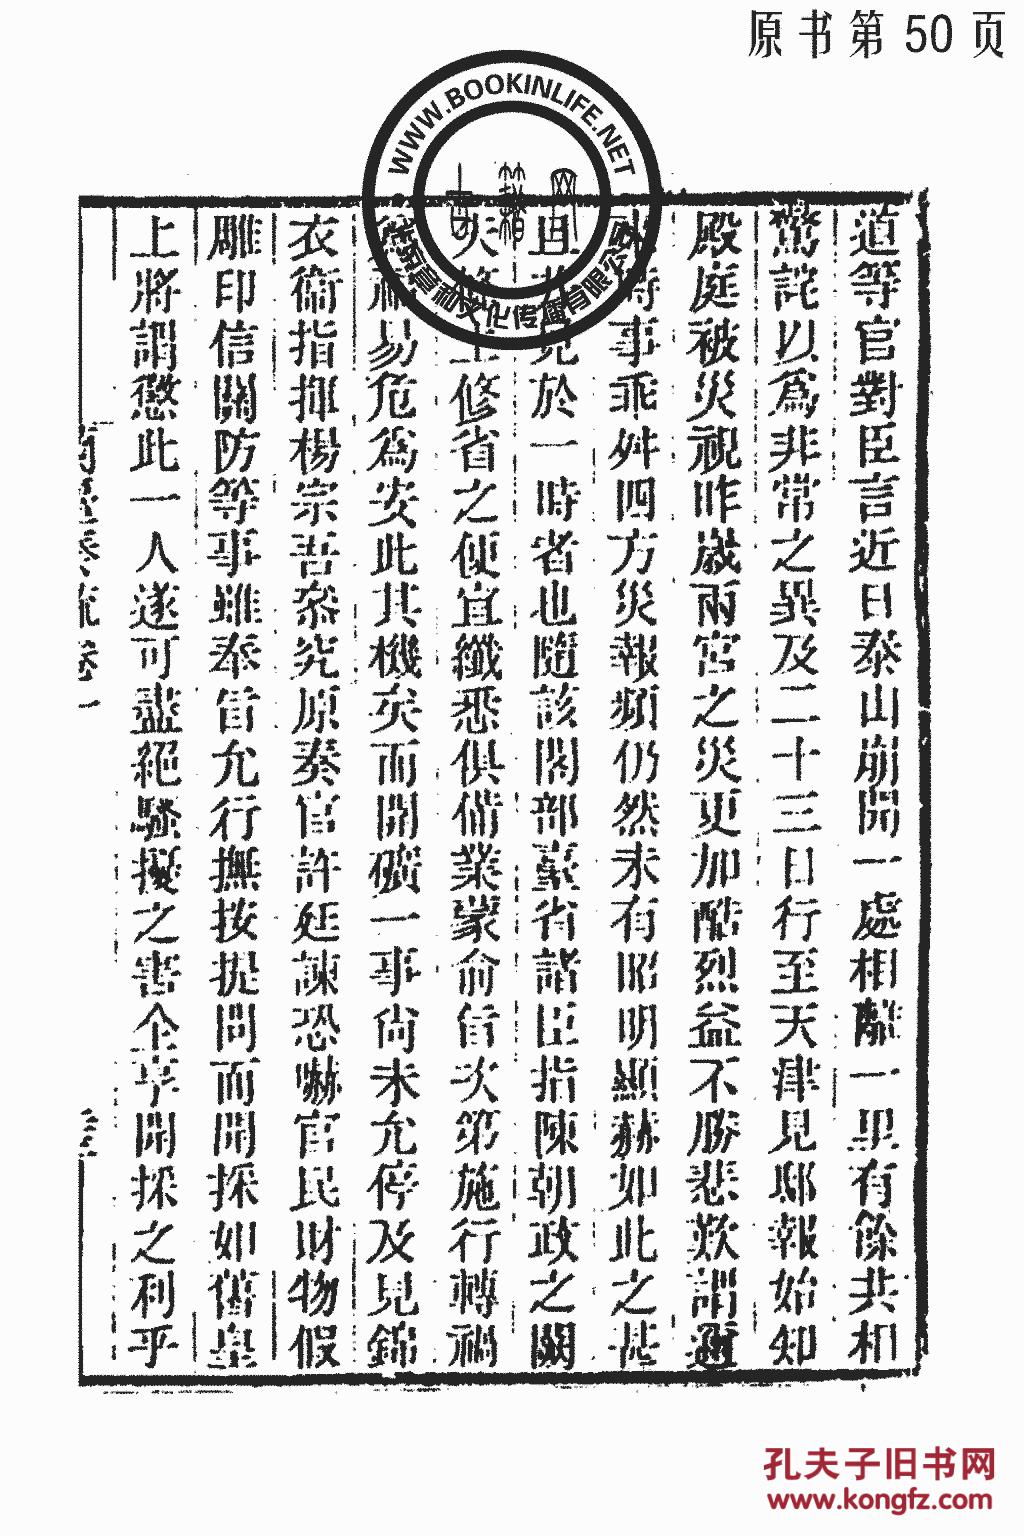 原书第50页
WWW.BOOKINLIFE.NET
道等官對臣言近日泰山崩開一處相離一里有餘共相
驚詫以爲非常之異及二十三日行至天津見邸報始知
殿庭被災視昨歲兩宮之災更加酷烈益不勝悲歎謂邇
時事乖舛四方災報頻仍然未有昭明顯赫如此之甚
且見於一時者也隨該閣部臺省諸臣指陳朝政之闕
失修省之便宜纖悉俱備業蒙俞旨次第施行轉禍
易危爲安此其機矣而開礦一事尚未允停及見錦
衣衞指揮楊宗吾叅究原奏官許廷諫恐嚇官民財物假
雕印信關防等事雖奉旨允行撫按提問而開採如舊皇
上將謂懲此一人遂可盡絕騷擾之害全享開採之利乎
奏疏卷一
孔夫子旧书网
www.kongfz.com